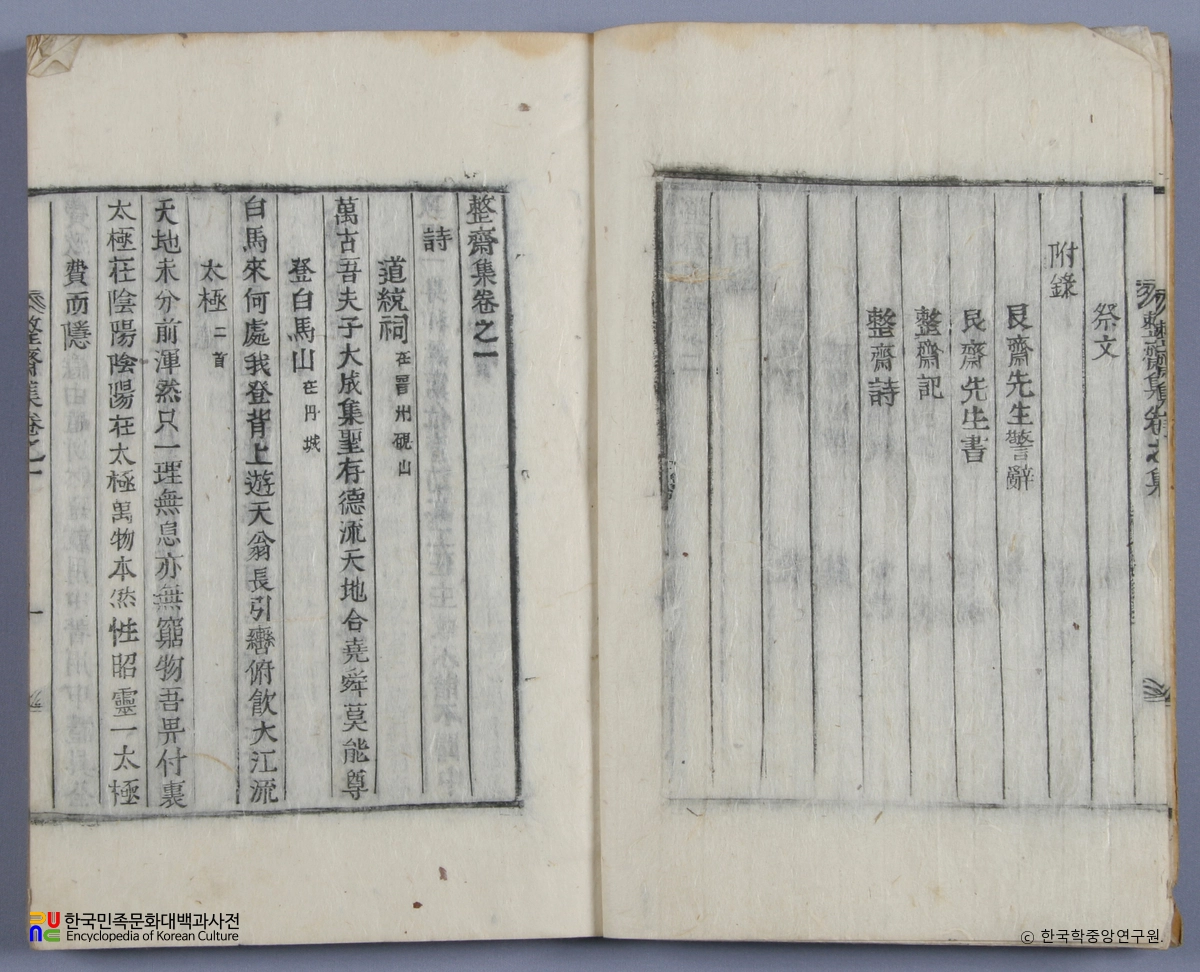 祭文
附錄
艮齋先生警辭
艮齋先生書
整齋記
整齋詩
整齋集卷之一
詩
道統祠 在晋州硯山
萬古吾夫子大成集聖存德流天地合堯舜莫能尊
登白馬山 在丹城
白馬來何處我登背上遊天翁長引轡俯飮大江流
太極 二首
天地未分前渾然只一理無息亦無窮物吾畀付裏
太極在陰陽陰陽在太極萬物本然性昭靈一太極
費而隱
整齋集卷之一
한국민족문화대백과사전
Encyclopedia of Korean Culture
© 한국학중앙연구원